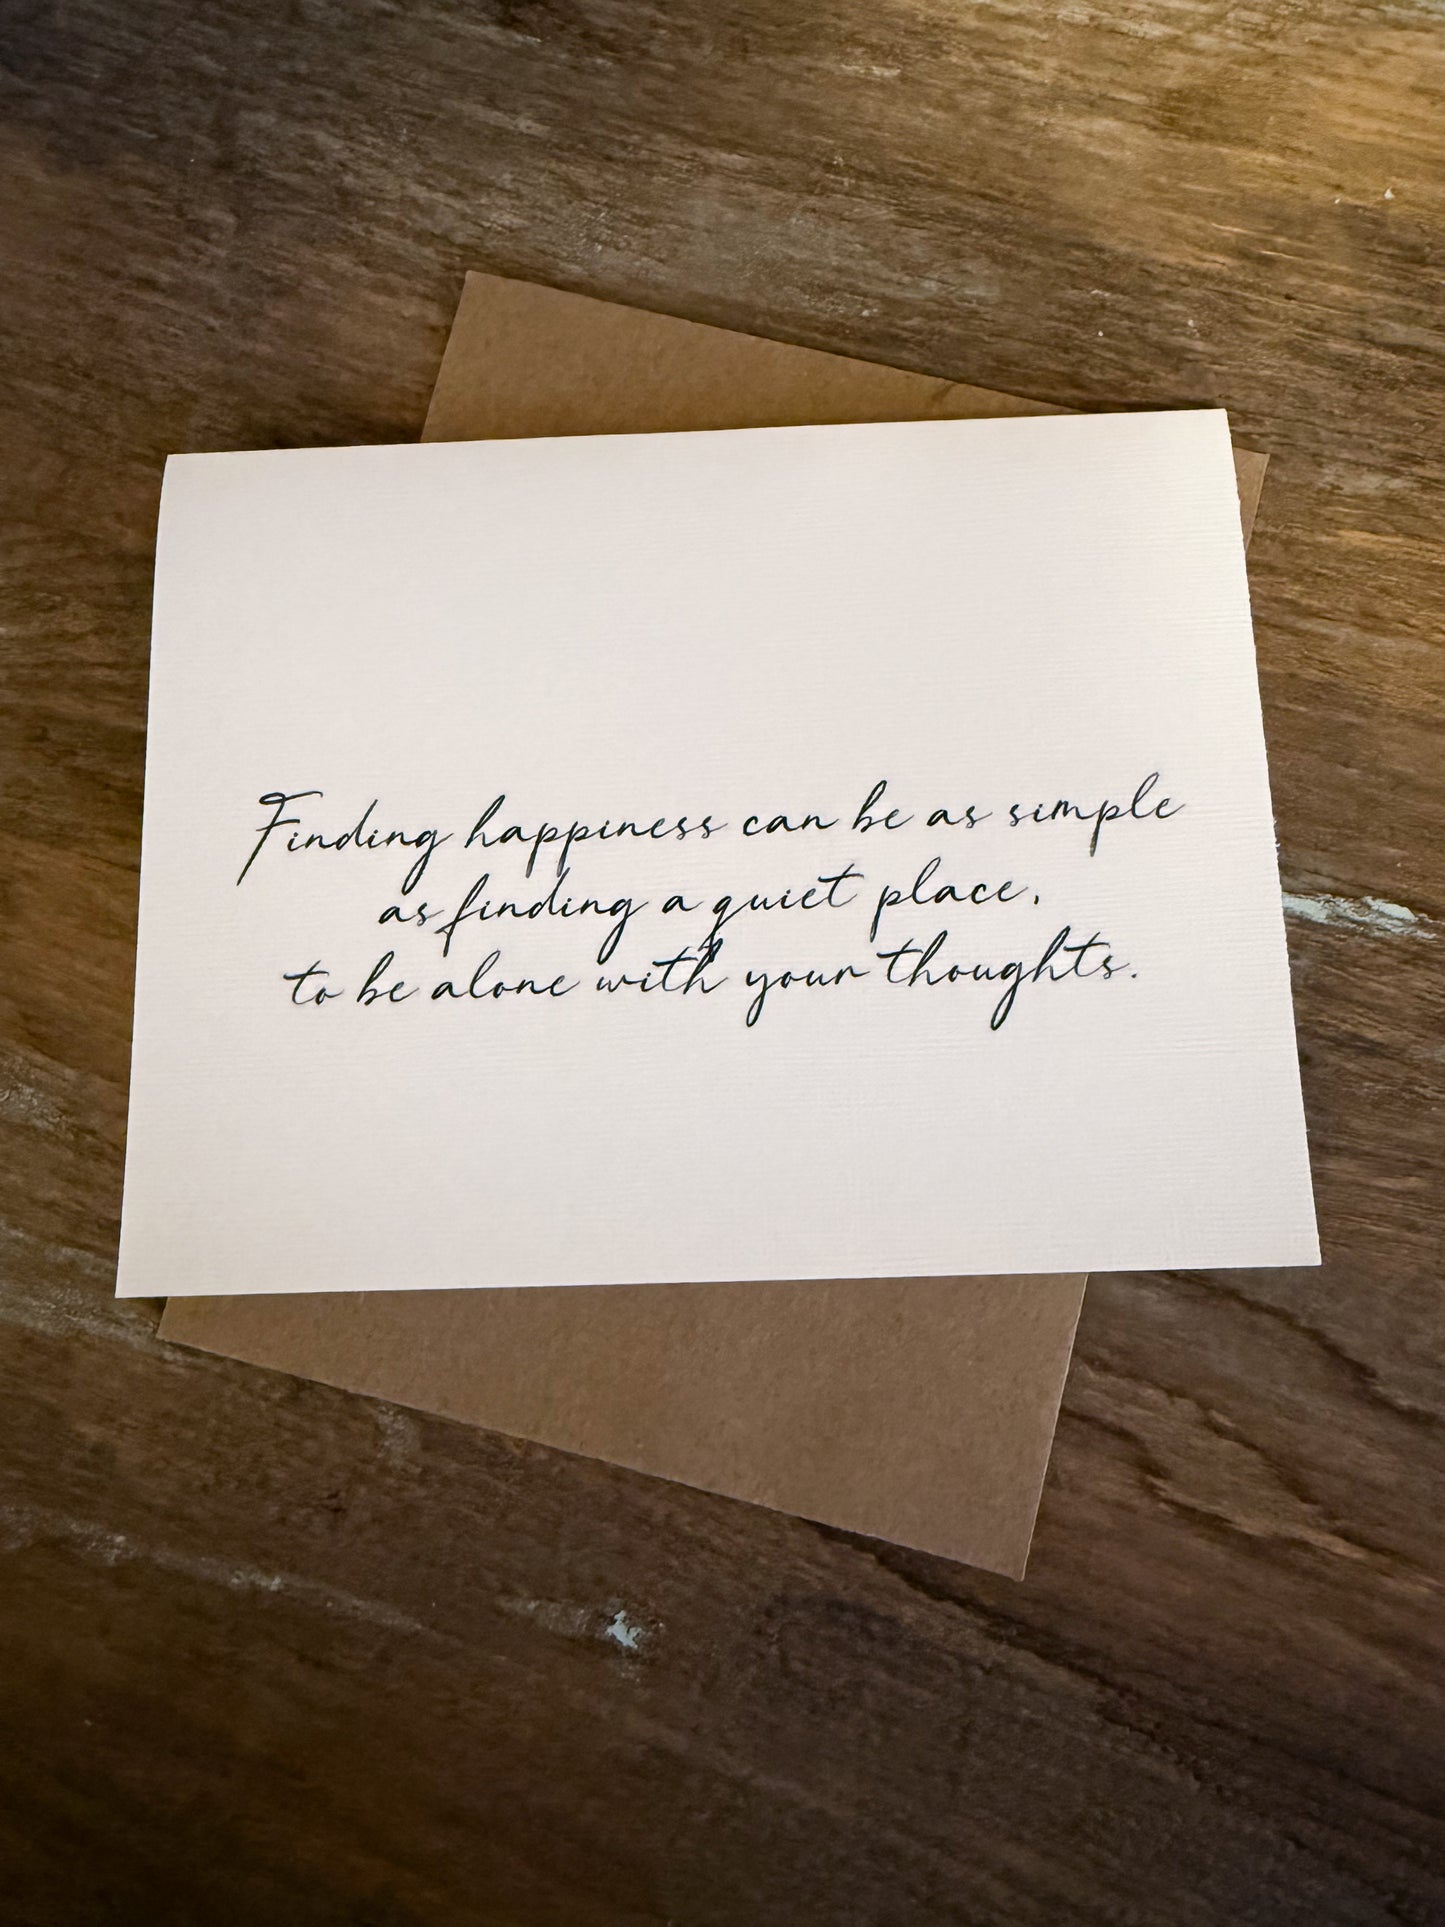 Finding happiness can be as simple
as finding a quiet place,
to be alone with your thoughts.